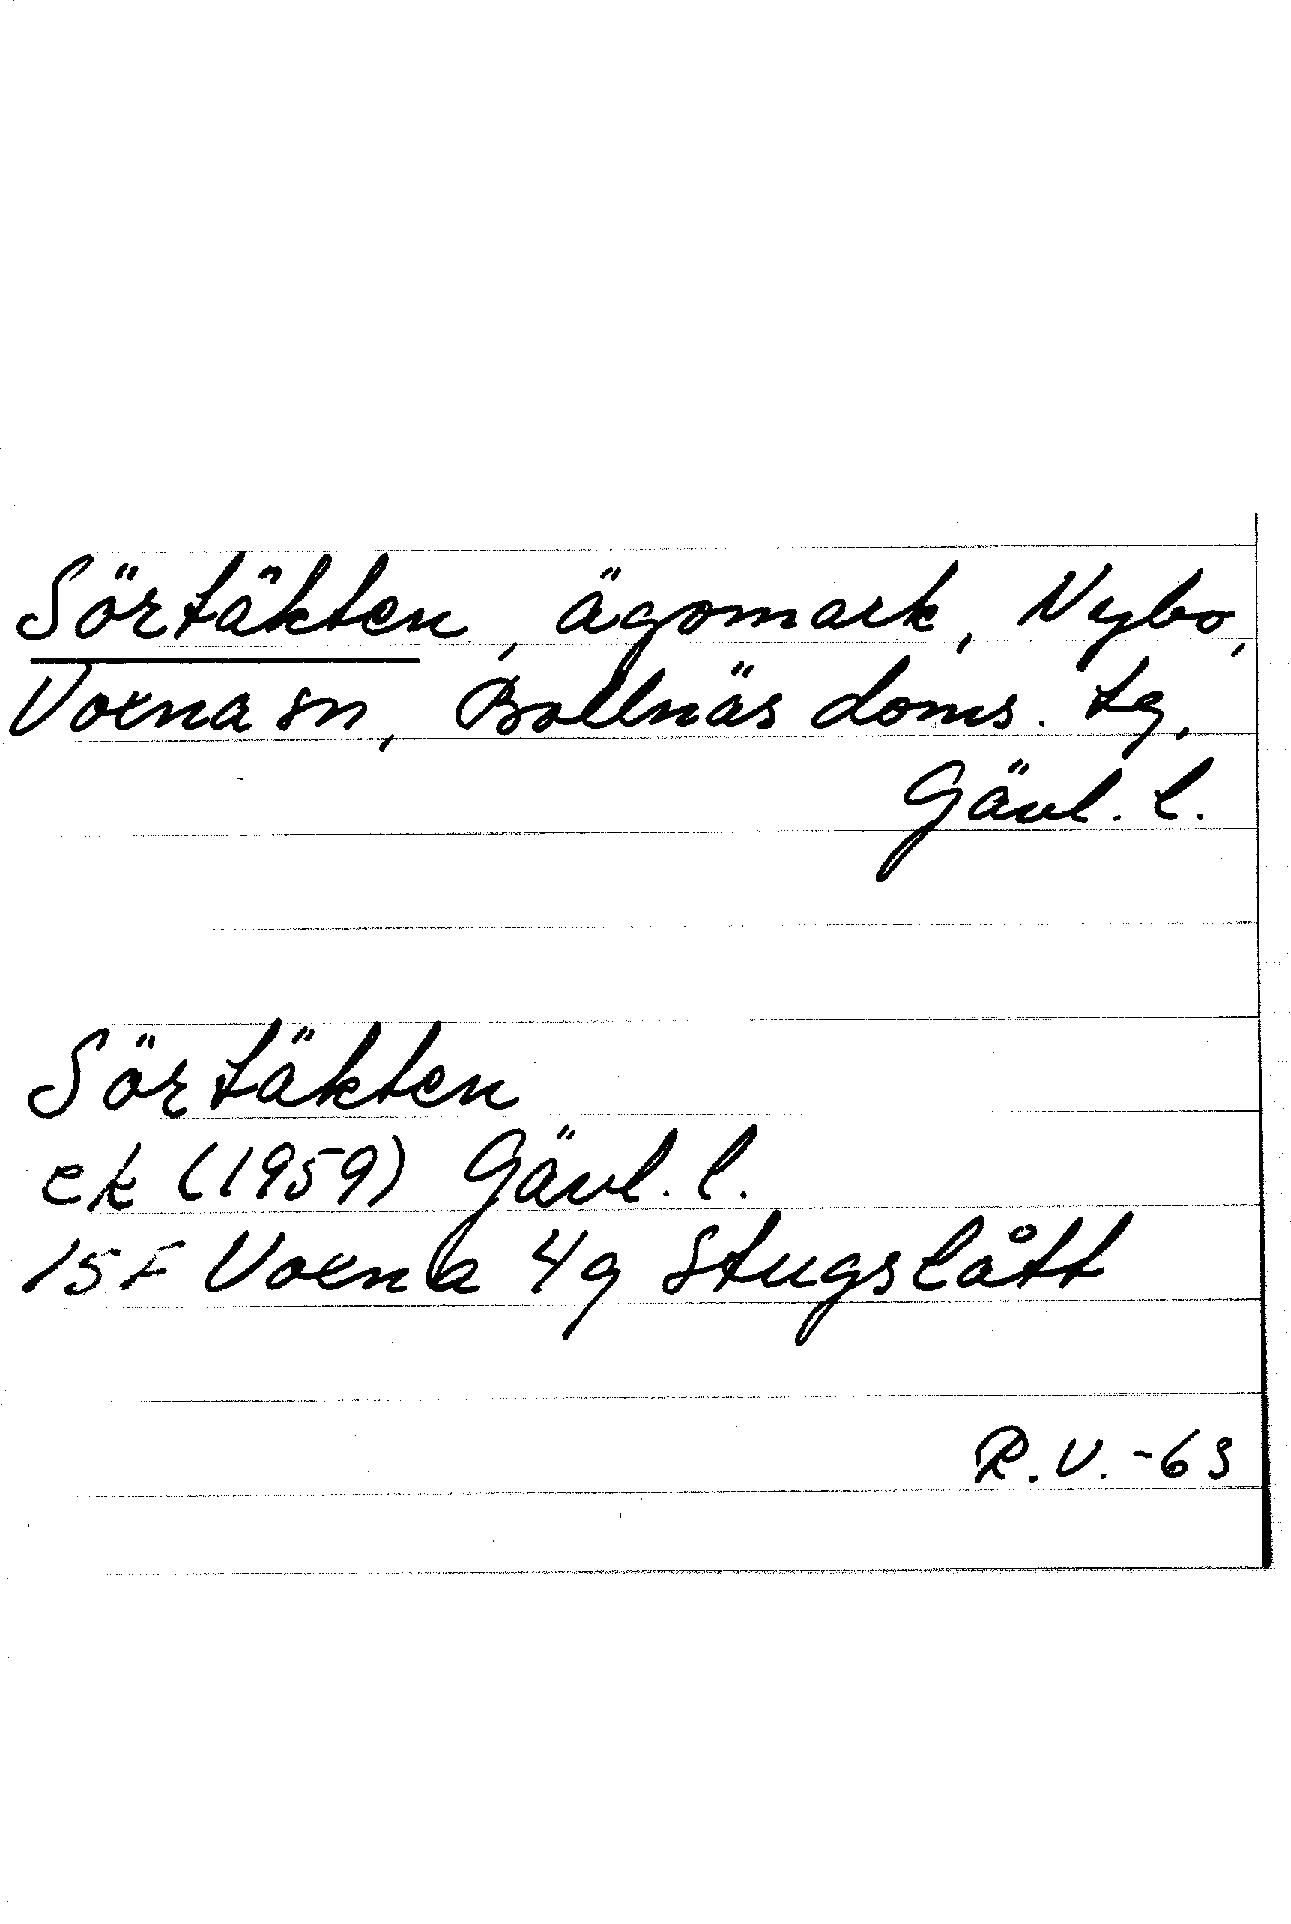 Sörtäkten, ägomark, Nybo,
Voxna sn, Bollnäs doms. tg,
Gävl. l.
Sörtäkten
ek (1959) Gävl. l.
15F Voxna 4g Stugslått
R.V. -63